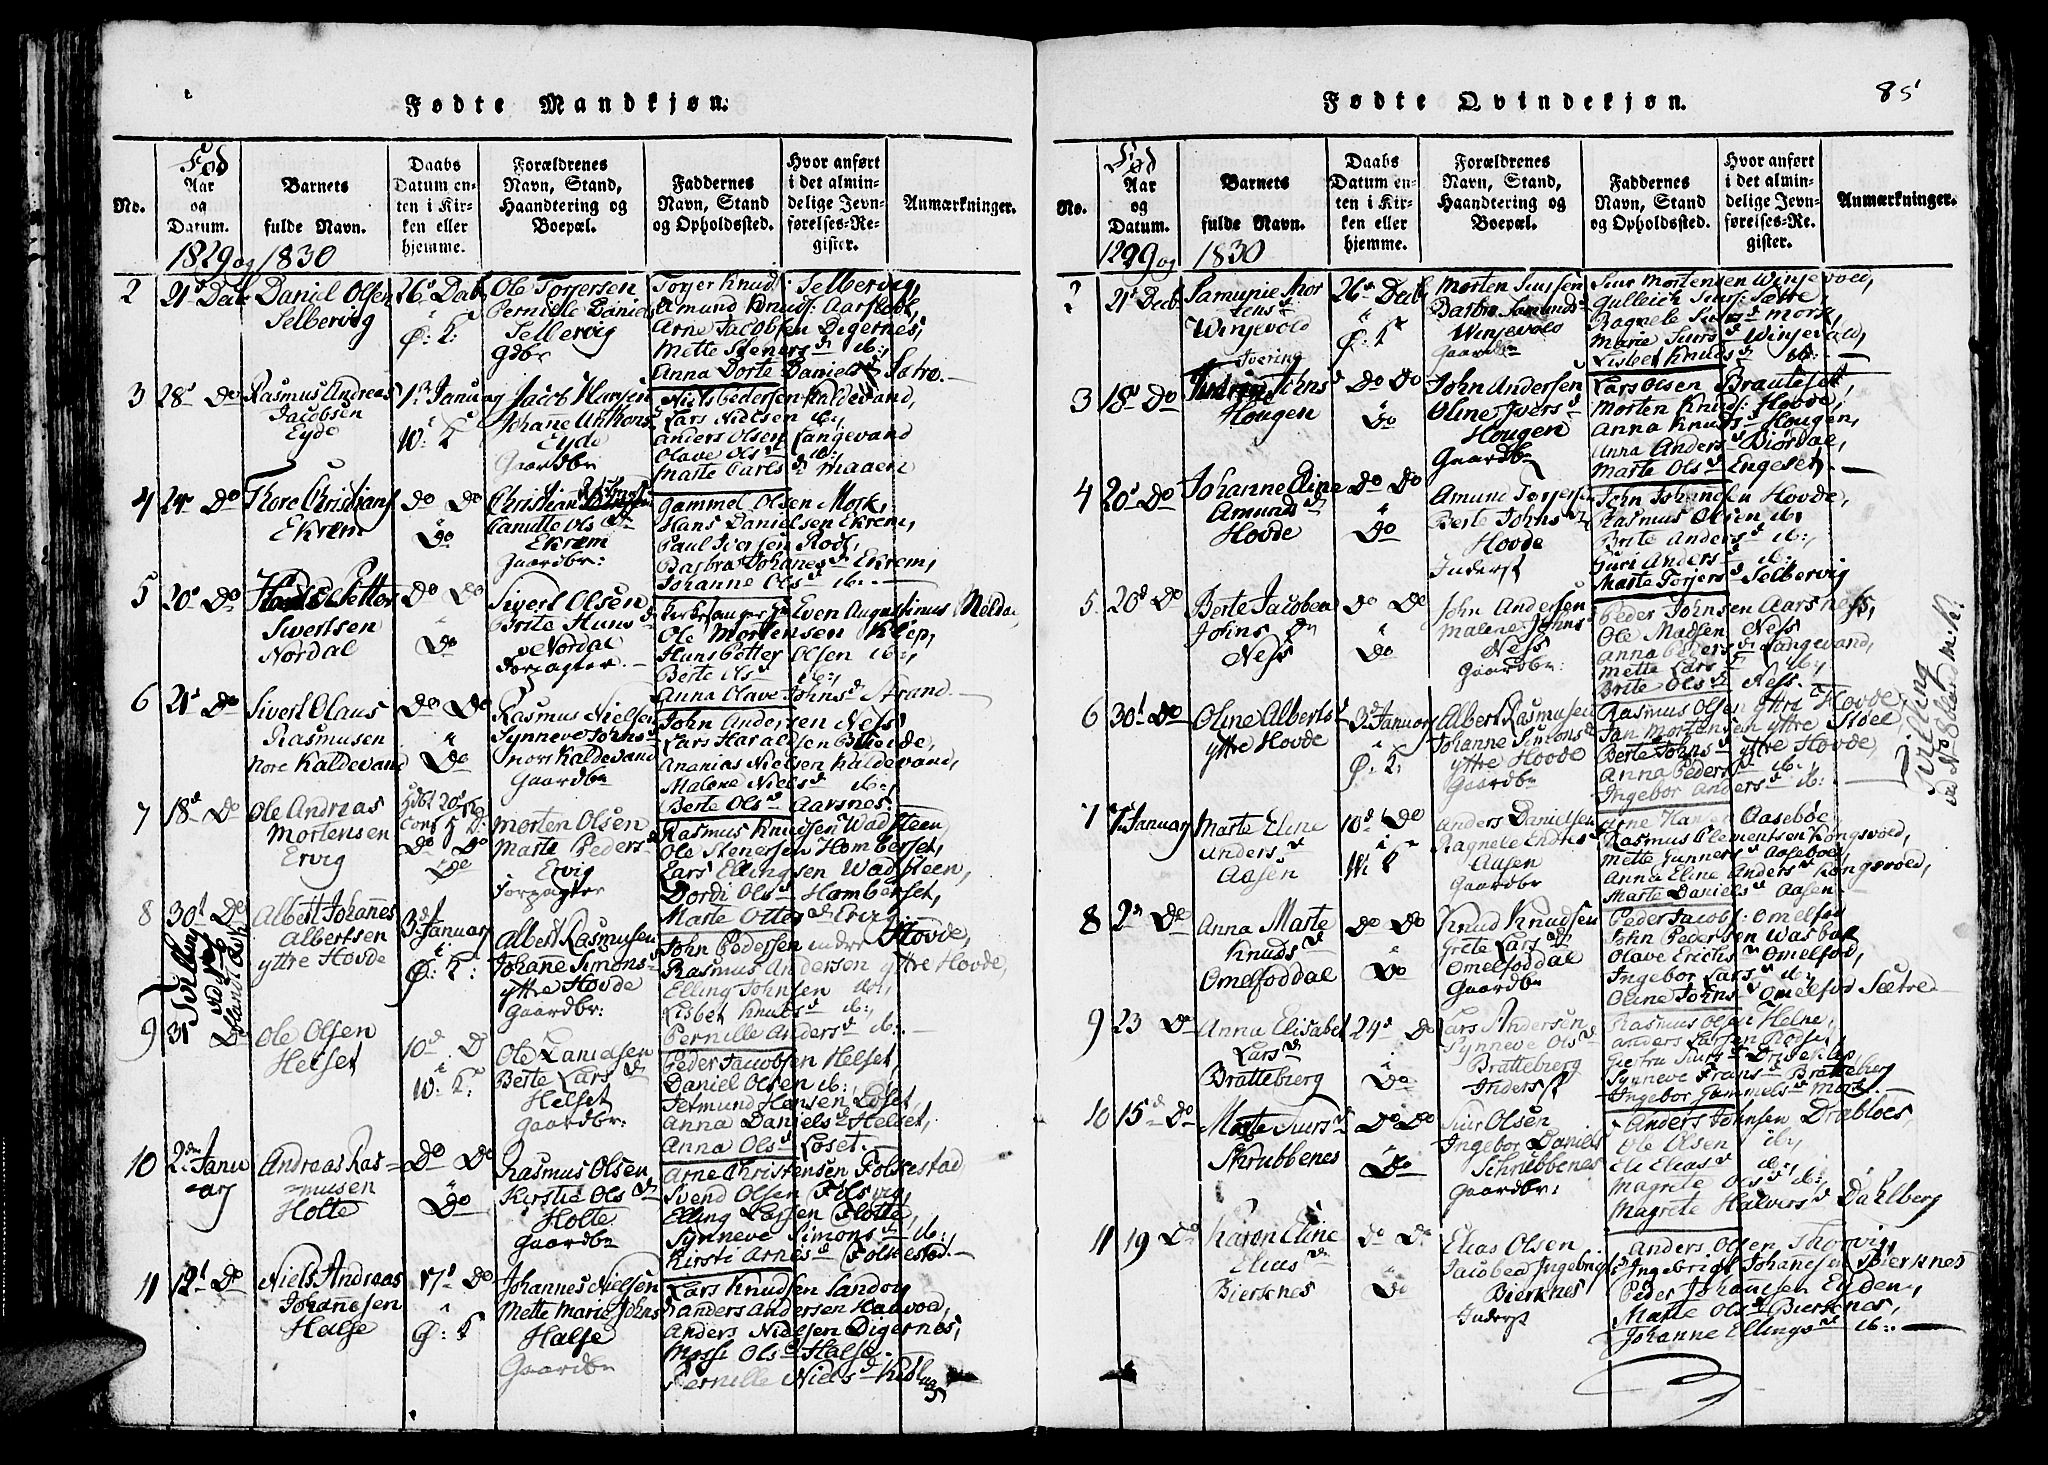 Fødte Mandkjøn.
No.
Fød
Aar
og
Datum.
Barnets
fulde Navn.
Daabs
Datum en-
ten i Kir-
ken eller
hjemme.
Forældrenes
Navn, Stand,
Haandtering og
Boepæl.
Faddernes
Navn, Stand
og Opholdssted.
Hvor anført
i det almin-
delige Jevn-
førelses-Re-
gister.
Anmærkninger.
1829 og 1830
2
21s Decb
Daniel Olsen
Selbervig
26s Decb
Ø: K:
Ole Torjersen
Pernille Daniels
Selbervig
Gdbr
Torjer Knuds: Selbervig,
Amund Knuds: Aarsleth,
Arne Jacobsen Digernes,
Mette Steners d ib:,
Anna Dorte Daniels d Satre.
3
28s Do
Rasmus Andreas
Jacobsen
Eyde
1s Januar
W: K
Jacob Hansen
Johanne Anthons
Eyde
Gaardbr
Niels Pedersen Kaldevand,
Lars Nielsen ib:,
Anders Olsen Langevand
Olave Ols d ib:,
Marte Carls d Maaen
4
24 Do
Thore Christians
Ekrem
Do Do
Do
Christian
Canutte Ols d
Ekrem
Gaardbr:
Gammel Olsen Mork,
Hans Danielsen Ekrem,
Paul Iversen Rod,
Barbra Johanes d Ekrem,
Johanne Ols d ib:
5
20s Do
Hans Petter
Sivertsen
Nordal
Do Do
Do
Sivert Olsen
Brite Hans d
Nordal
Forpagter.
Kirkesanger Even Augustinus Molda
Ole Mortensen Klep,
Hans Petter Olsen ib:,
Berte Ols d ib:,
Anna Olave Johns d Strand
6
21s Do
Sivert Olaus
Rasmusen
Nore Kaldevand
Do Do
Do
Rasmus Nielsen
Synneve Johns d
nore Kaldevand
Gaardbr
John Andersen Ness
Lars Haraldsen Bueide,
Ananias Nielsen Kaldevand,
Malene Niels d ib:,
Berte Ols d Aarsnes.
7
18d Do
Ole Andreas
Mortensen
Ervig
Hdbt 20s
Conf
Do Do
Do
Morten Olsen
Marte Peders d
Ervig
Forpagter
Rasmus Knudsen Wadsteen
Ole Stenersen Homberset,
Lars Ellingsen Wadsteen,
Dordi Ols d Homberset,
Marte Ottes d Ervig.
8
30t Do
Tvilling
Albert Johanes
Albertsen
yttre Hovde
3d Januar
Ø: K:
Albert Rasmusen
Johanne Simons d
yttre Hovde
Gaardbr:
John Pedersen indre Hovde,
Rasmus Andersen yttre Hovde,
Elling Johnsen
Lisbet Knuts d ib:,
Pernille Anders d ib:
9
31 Do
Ole Olsen
Helset
10d D
W: K:
Ole Danielsen
Berte Lars d
Helset
Gaardbr:
Peder Jacobsen Helset
Daniel Olsen ib:,
Jetmund Hansen Loset,
Anna Daniels d Helset,
Anna Ols d Loset.
10
2den Janu
ary
Andreas Ras=
=musen
Holte
Do Do
Do
Rasmus Olsen
Kirstie Ols d
Holte
Gaardbr
Arne Christensen Folkestad
Svend Olsen Folsvig,
Elling Larsen Holte,
Synneve Simons d ib:,
Kirsti Arnes d Folkestad.
11
12t Do
Niels Andreas
Johannesen
Halse
17s Do
Ø: K
Johannes Nielsen
Mette Marie Johns
Halse
Gaardbr
Lars Knudsen Sandvig
Anders Andersen Havoe,
Anders Nielsen Digernes,
Massi Ols d Halse.
Pernille Niels d
Fødte Qvindekjøn.
85
No.
Fød
Aar
og
Datum.
Barnets
fulde Navn.
Daabs
Datum en-
ten i Kir-
ken eller
hjemme.
Forældrenes
Navn, Stand,
Haandtering og
Boepæl.
Faddernes
Navn, Stand
og Opholdssted.
Hvor anført
i det almin-
delige Jevn-
førelses-Re-
gister.
Anmærkninger.
1299 og 1830
2
21s Decb
Samunie Mor
tens d
Winjevold
26s Decb
Ø: K
Morten Siursen
Barbra Samunds
Winjevold
Gaardbr
Siur Mortensen Winjevold,
Gulleich Siurs: Sætre,
Ragnele Siurs d Mork,
Marie Siurs d Winjevald,
Lisbet Knuds d ib:
3
18s Do
Ivering
Johns d
Hougen
Do Do
Do
John Andersen
Oline Ivers d
Hougen
Gaardbr
Lars Olsen Brauteset,
Morten Knuds: Hovde,
Anna Knuds d Hougen,
Anna Anders d Biørdal,
Marte Ols d Engeset,
4
20s Do
Johanne Eline
Amund d
Hovde
Do Do
Do
Amund Torjersen
Berte Johns d
Hovde
Inderst
John Johansen Hovde,
Rasmus Olsen ib:
Brite Anders d ib:,
Guri Anders d ib:
Marte Torjers d Selbervig
5
20d Do
Berte Jacobea
Johns d
Ness
Do Do
Do
John Andersen
Malene Johns
Ness
Gaardbr:
Peder Johnsen Aarsness,
Ole Madsen Ness
Anna Peders d Langevand,
Mette Lars d ib:,
Brite Ols d Ness.
6
30t Do
Oline Alberts d
yttre Hovde
3d Januar
Ø: K:
Albert Rasmusen
Johanne Simons d
yttre Hovde
Gaardbr
Rasmus Olsen yttre Hovde
Jan Mortensen yttre Støel
Berte Johns d yttre Hovde,
Anna Peders d ib:
Ingebor Anders d ib:
Tvilling
7
7s January
Marte Eline
Anders d
Aasen
10d Do
W K
Anders Danielsen
Ragnele Endres
Aasen
Gaardbr
Arne Hansen Aasebøe
Rasmus Clementsen Kongsvold,
Mette Gunners d Aasebøe,
Anna Eline Anders d Kongsvold,
Marte Daniels d Aasen
8
2n Do
Anna Marte
Knuds d
Omelfoddal
Do Do
Do
Knud Knudsen
Grete Lars d
Omelfoddal
Gaardbr
Peder Jacobs: Omelfod
John Pedersen Wasbak
Olave Erichs d Omelfod,
Ingebor Lars d ib:
Oline Johns d Omelfod Sætre
9
23 Do
Anna Elisabet
Lars d
Bratteberg
24s Do
Do
Lars Andersen
Synneve Ols d
Bratteberg
Inderst
Rasmus Olsen Helne,
Anders Larsen Rodset,
Synneve Frans d Bratteberg
Ingebor Gammels d Mork
10
15d Do
Marta Siurs d
Skrubbenes
Do Do
Do
Siur Olsen
Ingebor Daniels
Schrubbenes
Gaardbr:
Anders Johnsen Drabløes,
Ole Olsen ib:,
Eli Elias d ib:,
Magrete Ols d ib:,
Magrete Halvers d Dahlberg
11
19 Do
Karen Eline
Elias d
Biersknes
Do Do
Do
Elias Olsen
Jacobea Ingebrigts
Biersknes
Inderst
Anders Olsen Thorvig,
Ingebrigt Johannesen Biersknes
Peder Johannesen Eyden,
Marte Ols d Biersknes,
Johanne Ellings d ib: